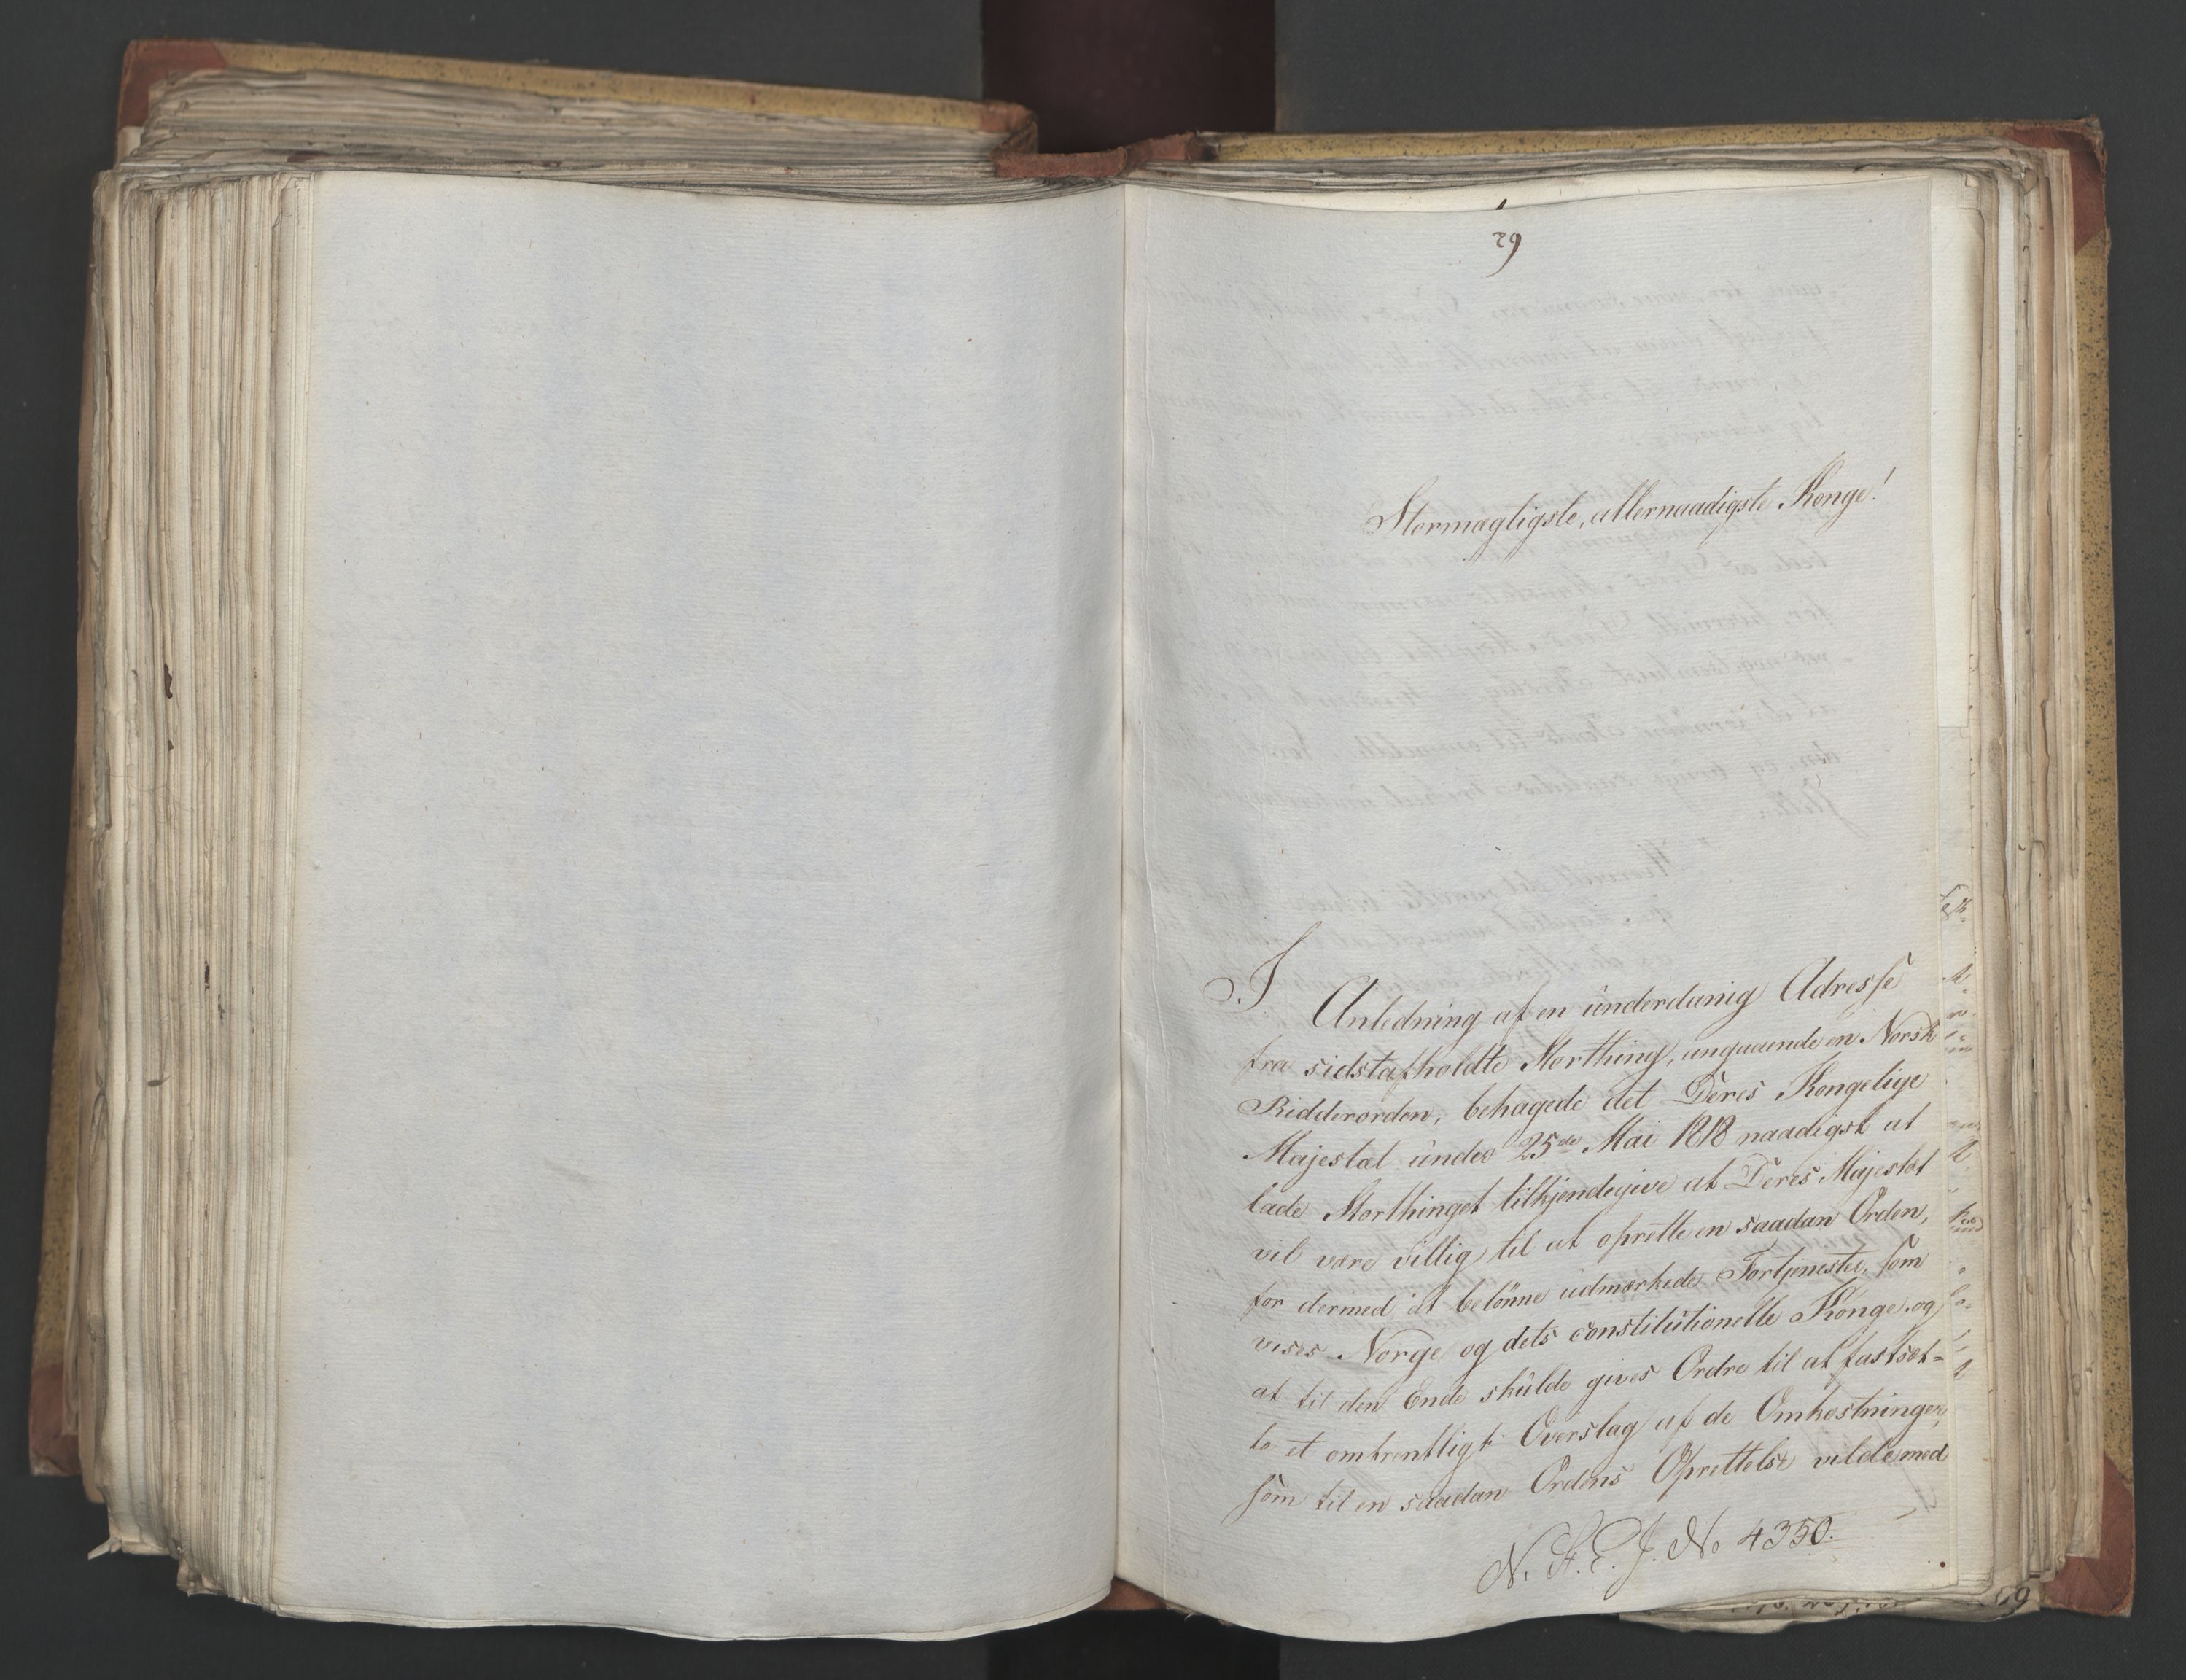 29
Stormægtigste, allernaadigste Konge!
I Anledning af en underdanig Adresse
fra sidstafholdte Storthing, angaaende en Norsk
Ridderorden, behagede det Deres Kongelige
Majestæt under 25de Mai 1818 naadigst at
lade Storthinget tilkjendegive at Deres Majestæt
vil være villig til at oprette en saadan Orden,
for dermed at belönne udmærkede Fortjenester, som
vises Norge og dets constitutionelle Konge, og
at til den Ende skulde gives Ordre til at fastsæt=
te et omtrentligt Overslag af de Omkostninger,
som til en saadan Ordens Oprettelse vilde med
N. St. E. J. No 4350.